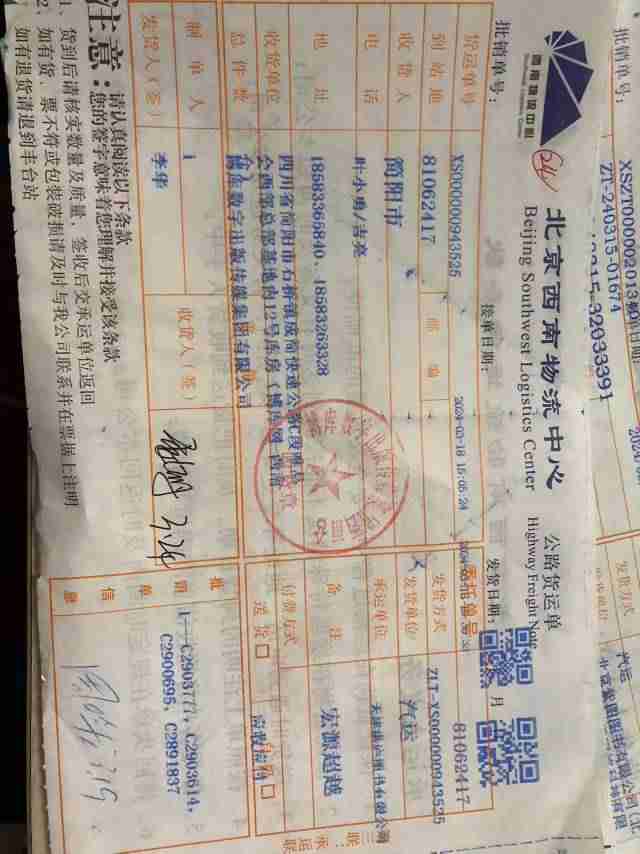 批销单号:
XSZT000002013
ZT-240315-01674
0315-32033391
西南物流中心
北京西南物流中心
Beijing Southwest Logistics Center
公路货运单
Highway Freight Note
批销单号:
接单日期:
发货日期:
月
货运单号
XS00000943525
2024-03-18 15:05:24
委托单号
到站地
81062417
邮编
发货方式
81062417
ZLT-XS00000943525
收货人
简阳市
发货单位
汽运
电话
叶小鸣/吉亮
承运单位
地址
18583365840、18583263328
备注
宏源超越
收货单位
四川省简阳市石桥镇成简快速公路
西部总部基地内12号库房
付费方式
总件数
数字出版传媒集团有限公司
送货
制单人
1
批销单信息
1--C2903771, C2903614,
C2900695, C2891837
发货人(签)
李华
收货人(签)
3.26
3.19
三联:承运联
注意:
请认真阅读以下条款
您的签字意味着您理解并接受该条款
1、货到后请核实数量及质量,签收后交承运单位返回
2、如有货、票不符或包装破损请及时与我公司联系并在票据上注明
如有退货请退到丰台站
发货方式
汽运